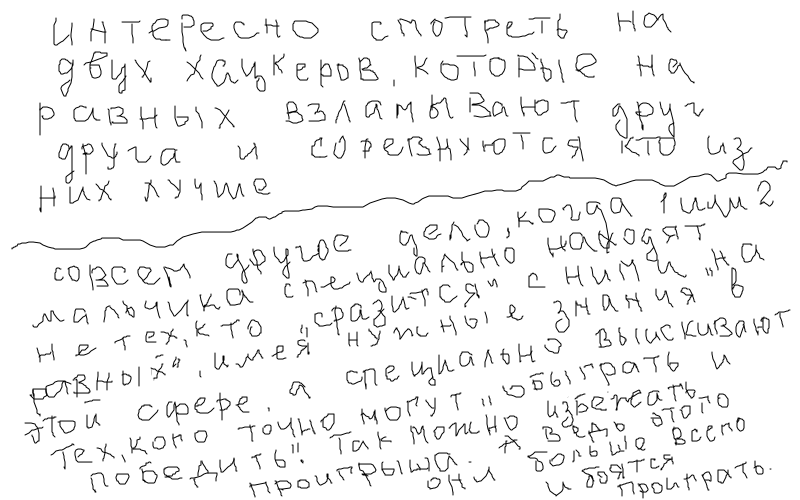 интересно смотреть на
двух хацкеров, которые на
равных взламывают друг
друга и соревнуются кто из
них лучше
совсем другое дело, когда 1 или 2
мальчика специально находят
не тех, кто "сразится" с ними "на
равных", имея нужные знания в
этой сфере, а специально выискивают
тех, кого точно могут "обыграть и
победить". Так можно избежать
проигрыша. А ведь этого
они больше всего
и боятся
проиграть.